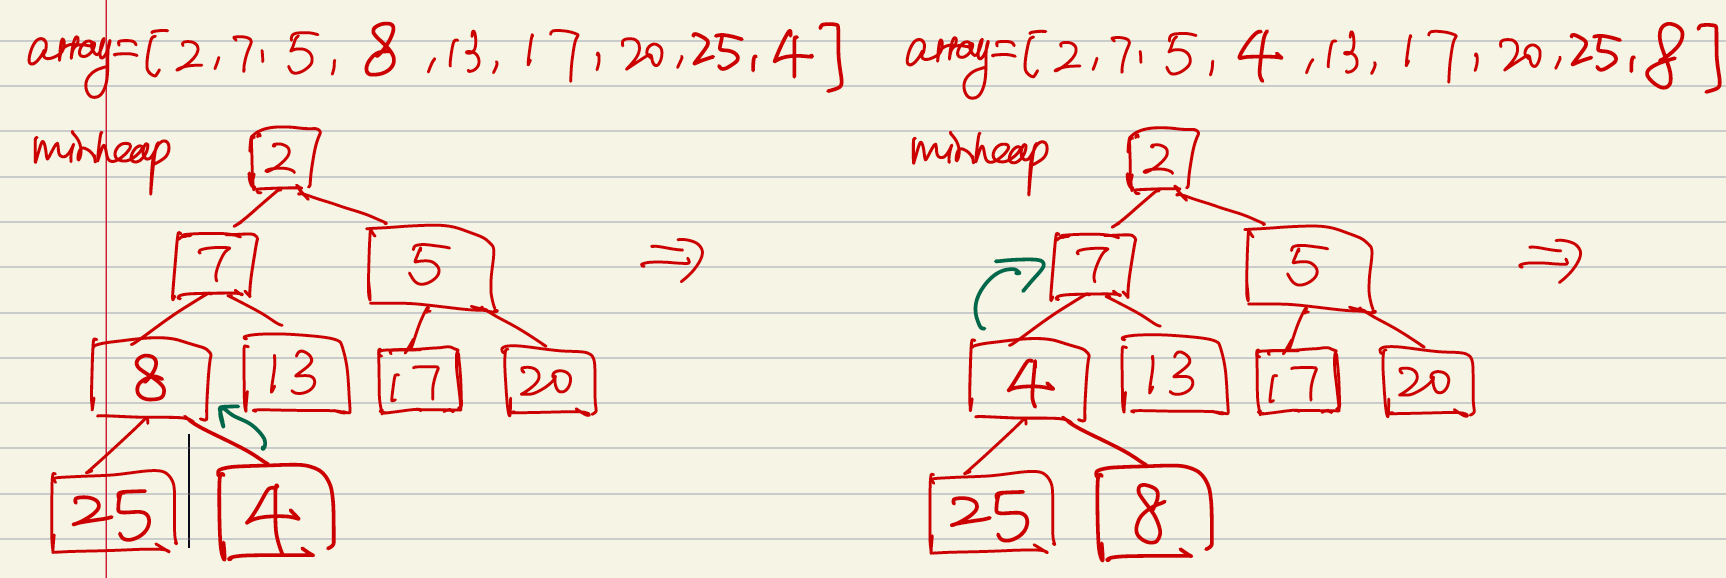 array=[2,7,5,8,13,17,20,25,4]
minheap
2
7 5
8 13 17 20
25 4
array=[2,7,5,4,13,17,20,25,8]
minheap
2
7 5
4 13 17 20
25 8